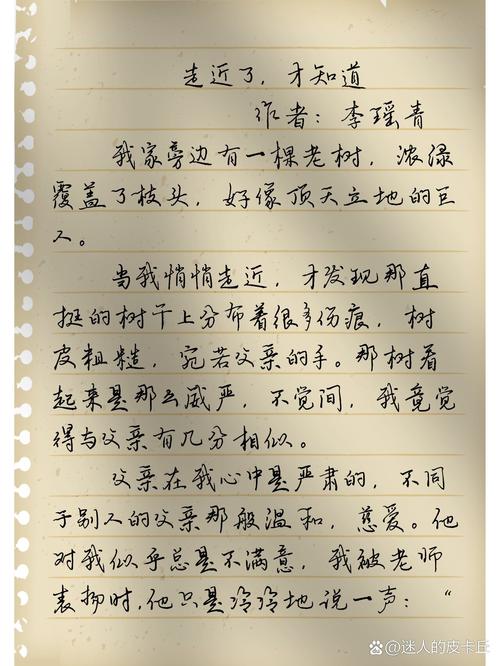 走近了,才知道
作者:李瑶青
我家旁边有一棵老树,浓绿
覆盖了枝头,好像顶天立地的巨
人。
当我悄悄走近,才发现那直
挺的树干上分布着很多伤痕,树
皮粗糙,宛若父亲的手。那树看
起来是那么威严,不觉间,我竟觉
得与父亲有几分相似。
父亲在我心中是严肃的,不同
于别人的父亲那般温和,慈爱。他
对我似乎总是不满意,我被老师
表扬时,他只是冷冷地说一声:“
@迷人的皮卡丘